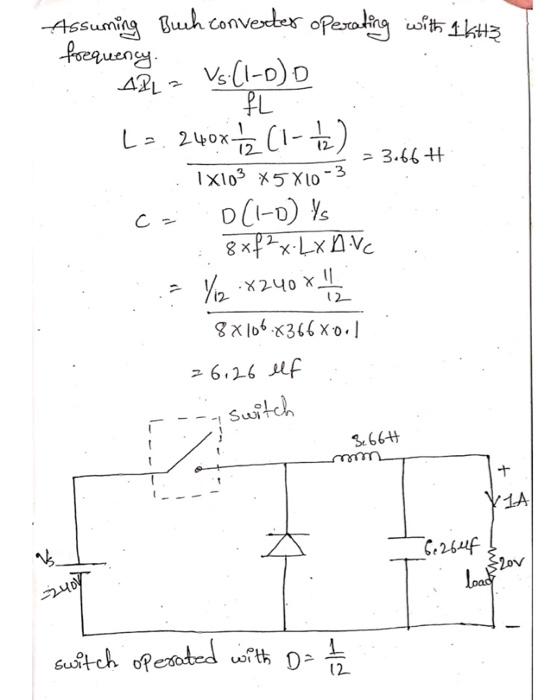 Assuming Buck converter operating with 1kHz
frequency.
ΔIL = Vs.(1-D)D / fL
L = 240 x 1/12 (1 - 1/12) / 1x10³ x 5x10⁻³ = 3.66 H
C = D(1-D) Vs / 8xf²x.LxΔ.Vc
= 1/12 .x240 x 11/12 / 8x10⁶.x366x0.1
= 6.26 uf
switch
3.66H
+
1A
Vs
=240V
6.26uf
20v
load
-
switch operated with D = 1/12